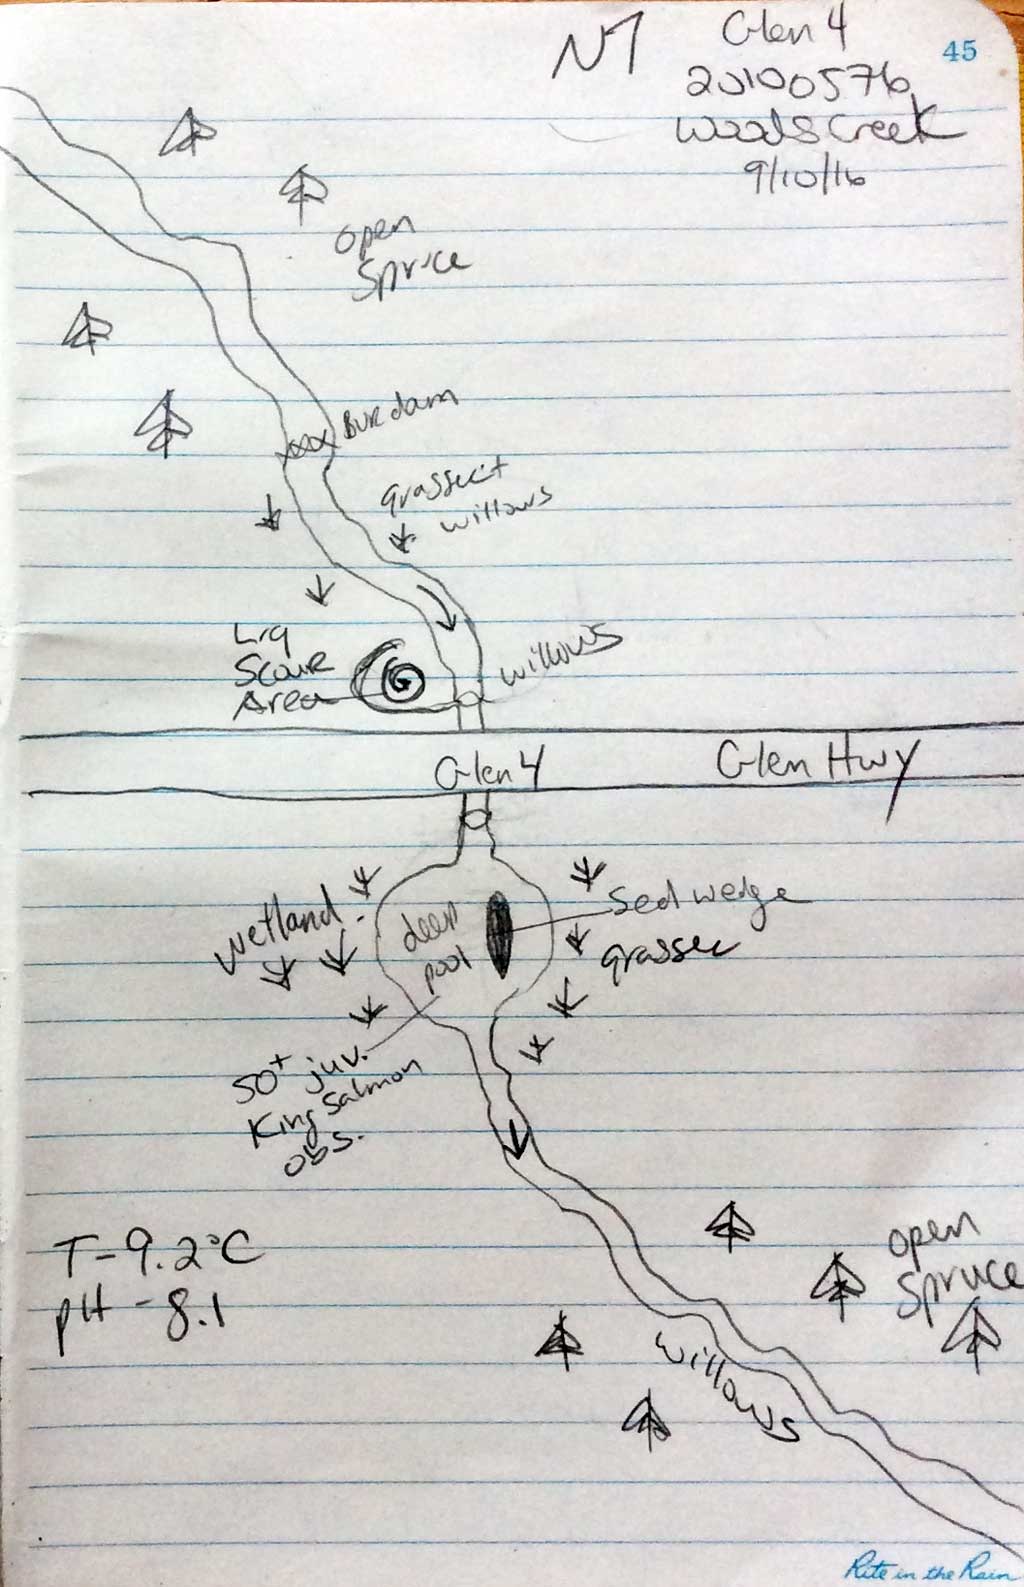 45
N
Glen 4
20100576
Woods Creek
9/10/16
Open
Spruce
BVR dam
grasses +
willows
Lrg
Scour
Area
willows
Glen 4
Glen Hwy
Wetland
deep
pool
Sed wedge
grasses
50+ juv.
King Salmon
obs.
T-9.2°C
pH -8.1
open
Spruce
willows
Rite in the Rain